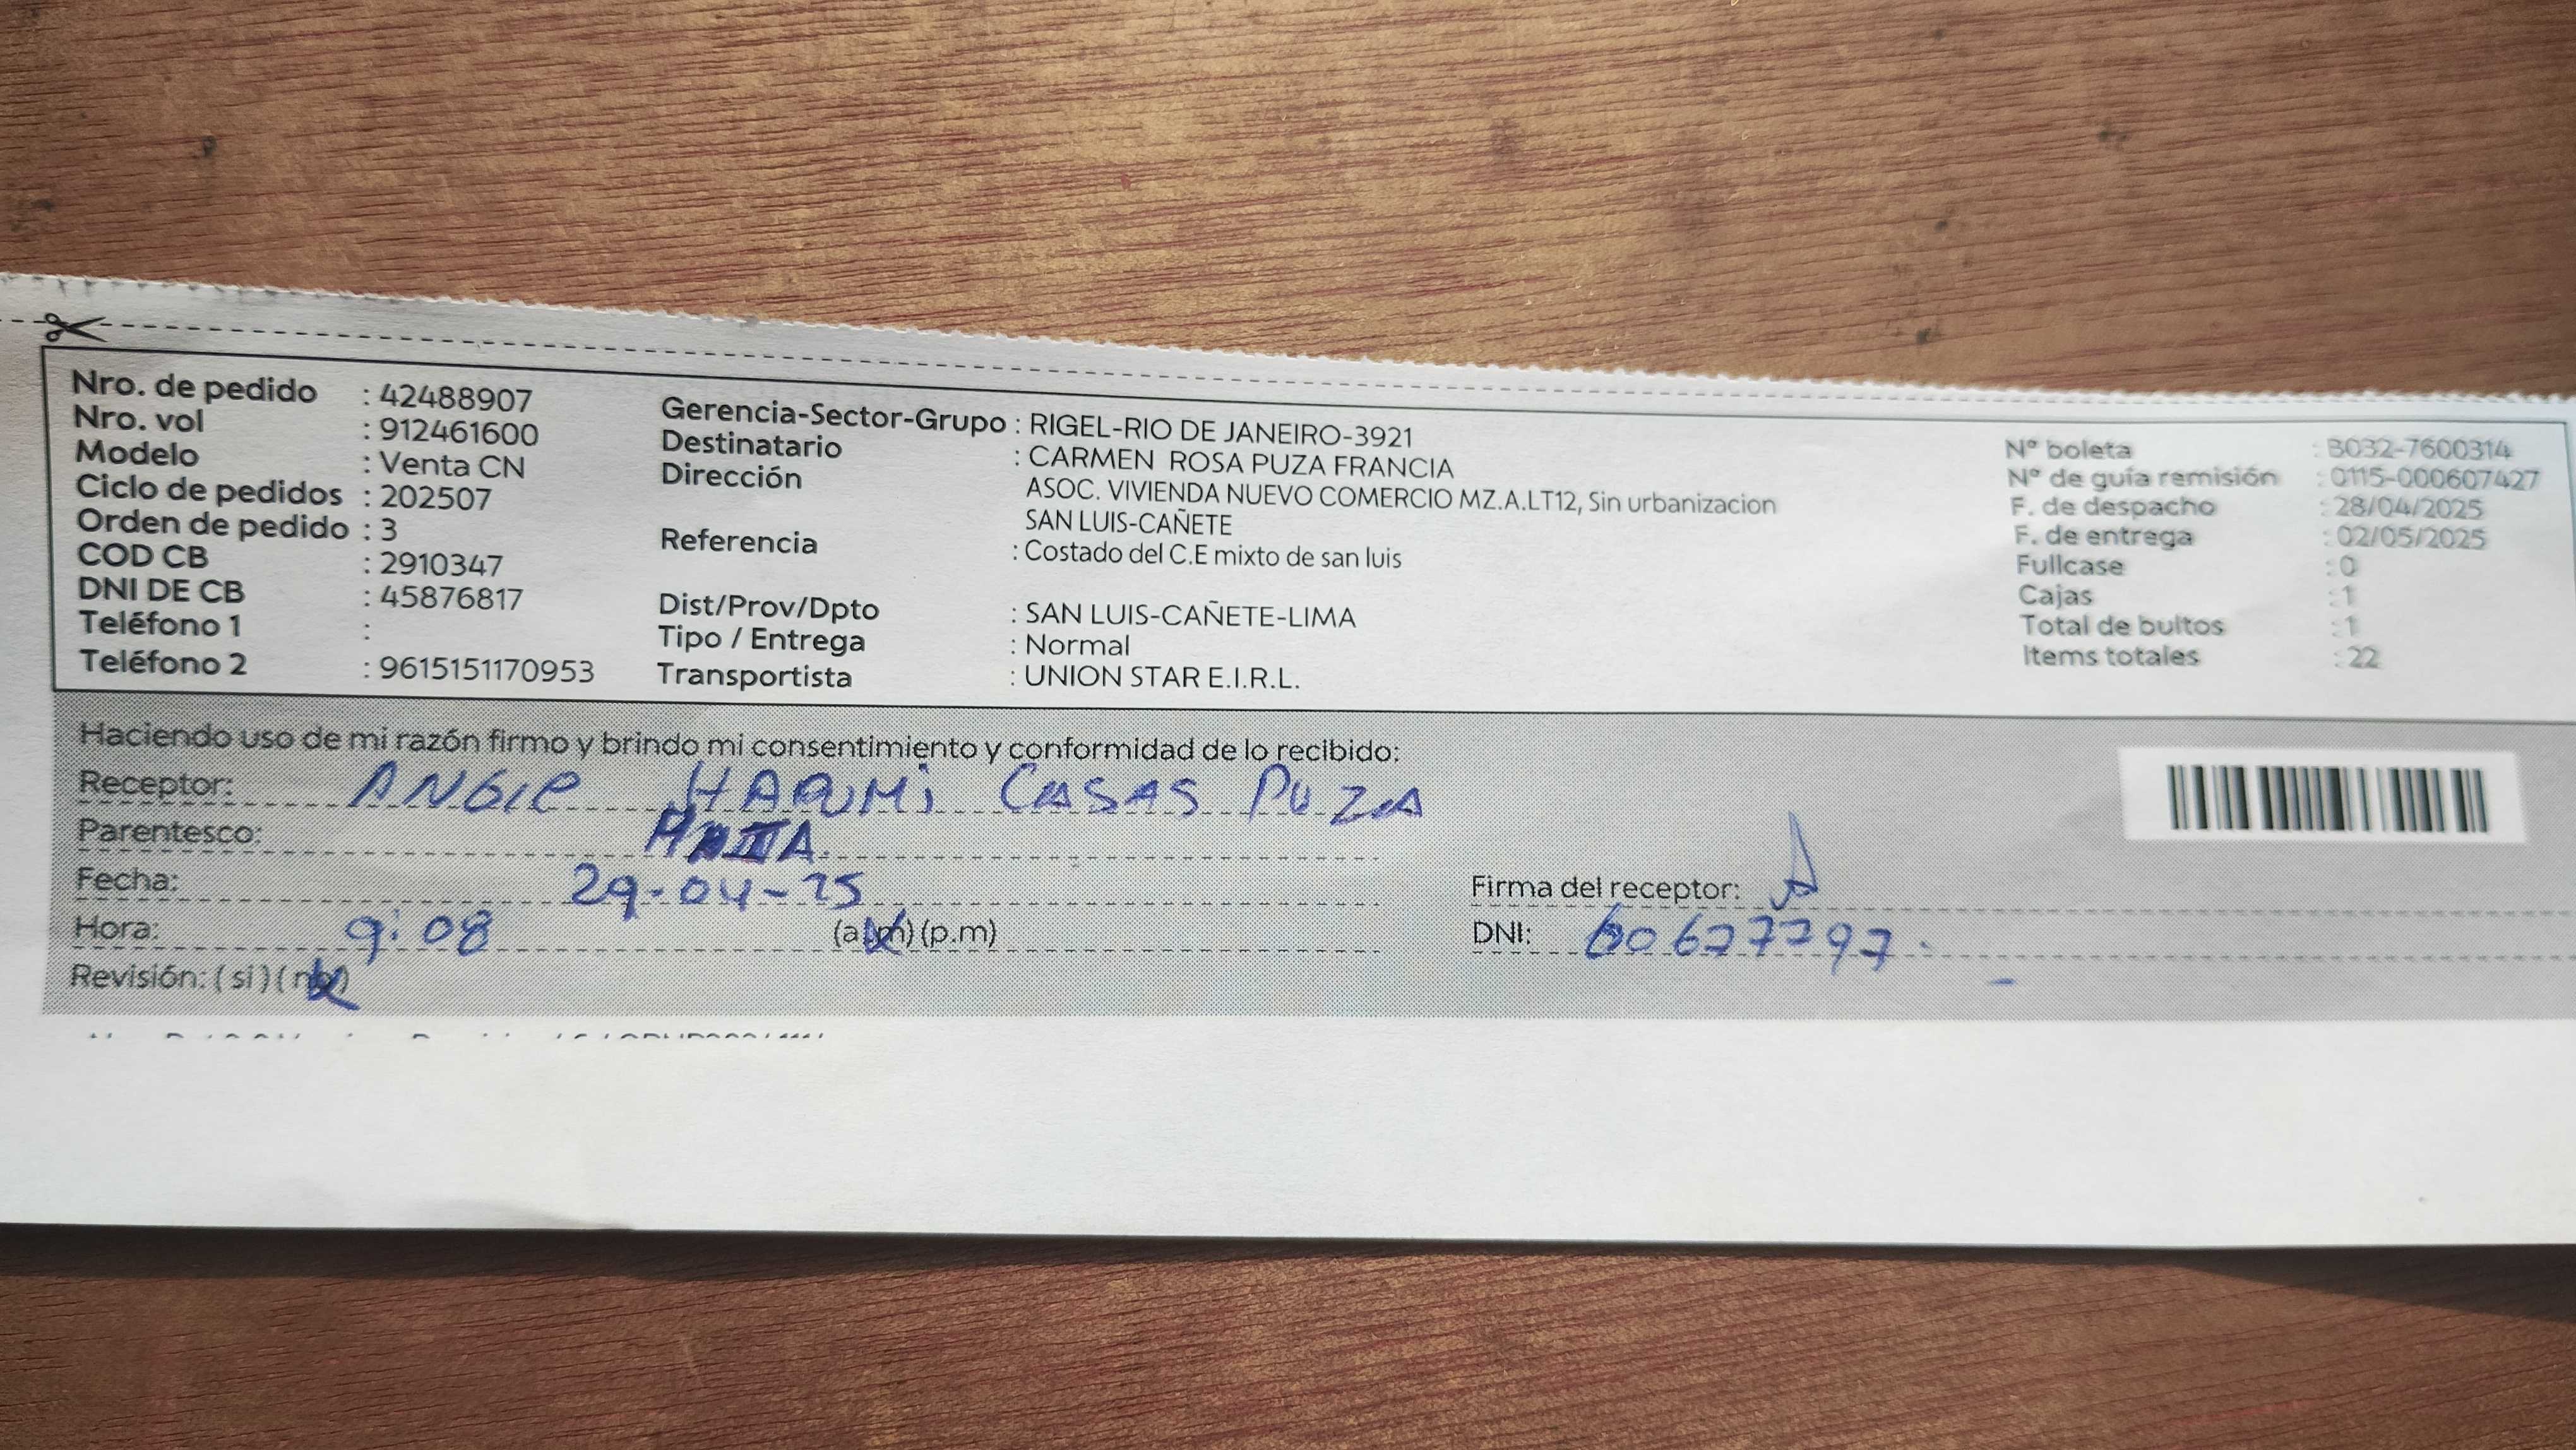 Nro. de pedido : 42488907
Nro. vol : 912461600
Modelo : Venta CN
Ciclo de pedidos : 202507
Orden de pedido : 3
COD CB : 2910347
DNI DE CB : 45876817
Teléfono 1 :
Teléfono 2 : 9615151170953
Gerencia-Sector-Grupo : RIGEL-RIO DE JANEIRO-3921
Destinatario : CARMEN ROSA PUZA FRANCIA
Dirección ASOC. VIVIENDA NUEVO COMERCIO MZ.A.LT12, Sin urbanizacion
SAN LUIS-CAÑETE
Referencia : Costado del C.E mixto de san luis
Dist/Prov/Dpto : SAN LUIS-CAÑETE-LIMA
Tipo / Entrega : Normal
Transportista : UNION STAR E.I.R.L.
Nº boleta : B032-7600314
Nº de guía remisión : 0115-000607427
F. de despacho : 28/04/2025
F. de entrega : 02/05/2025
Fullcase : 0
Cajas : 1
Total de bultos : 1
Items totales : 22
Haciendo uso de mi razón firmo y brindo mi consentimiento y conformidad de lo recibido:
Receptor: ANGIE HARUMI CASAS PUZA
Parentesco:
Fecha: 29-04-25
Hora: 9:08 (a.m) (p.m)
Revisión: ( si ) ( no )
Firma del receptor:
DNI: 60627797